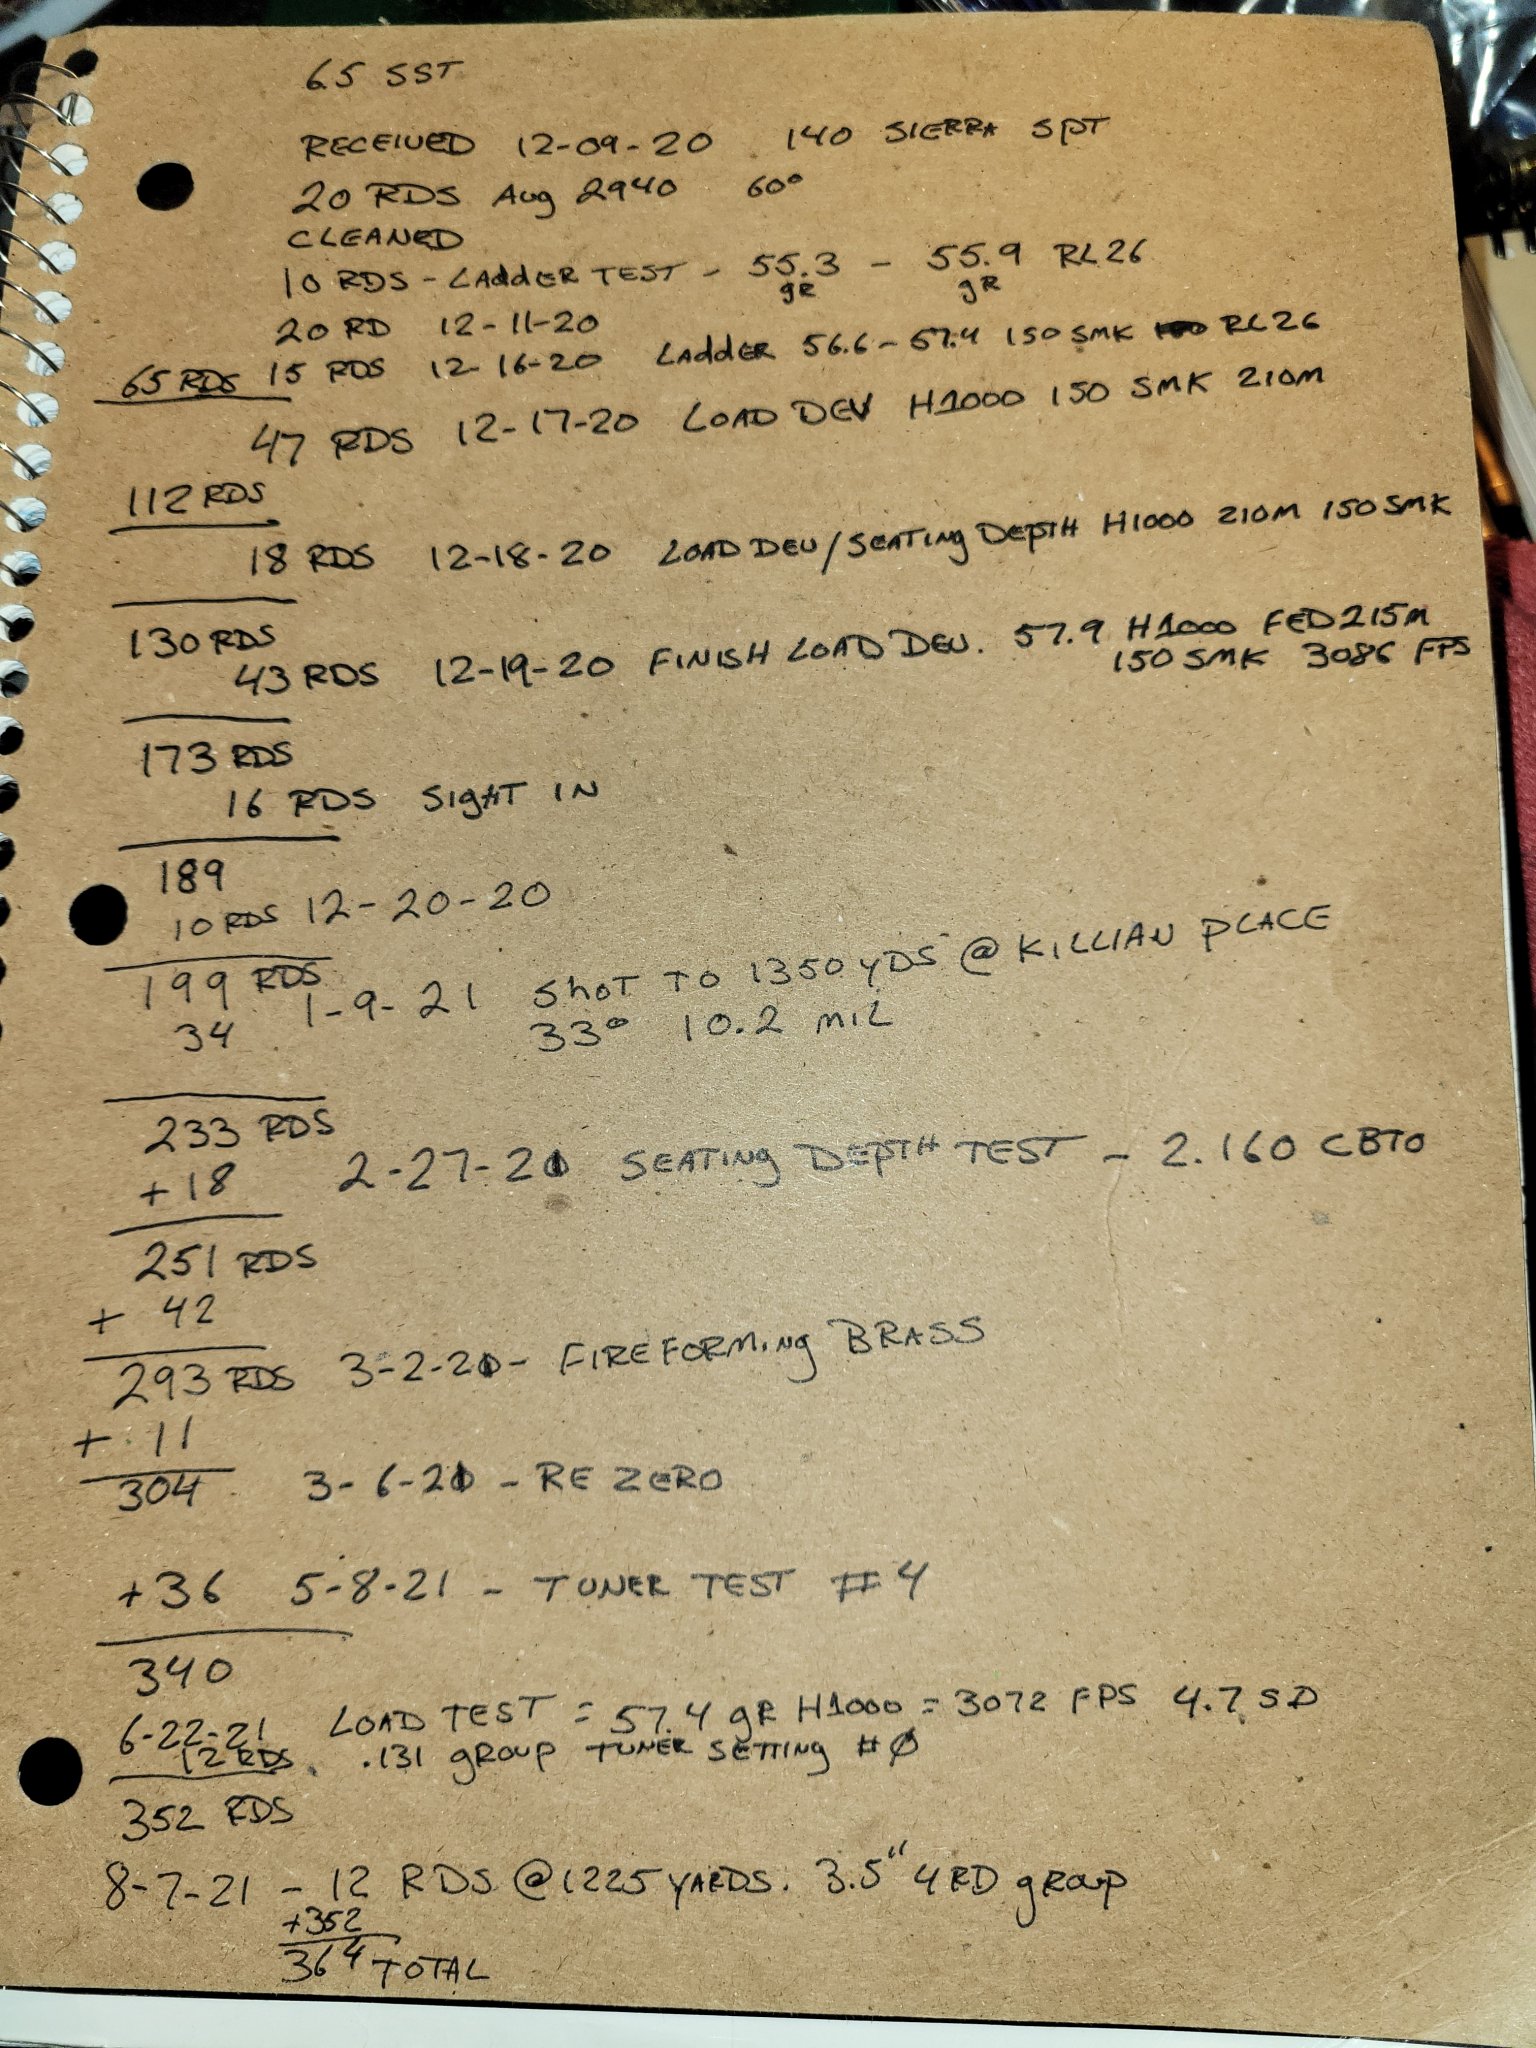 6.5 SST
RECEIVED 12-09-20 140 SIERRA SPT
20 RDS Avg 2940 60°
CLEANED
10 RDS - LADDER TEST - 55.3 gR - 55.9 gR RL26
20 RD 12-11-20
15 RDS 12-16-20 LADDER 56.6 - 57.4 150 SMK RL26
65 RDS
47 RDS 12-17-20 LOAD DEV H1000 150 SMK 210M
112 RDS
18 RDS 12-18-20 LOAD DEV/SEATING DEPTH H1000 210M 150 SMK
130 RDS
43 RDS 12-19-20 FINISH LOAD DEV. 57.9 H1000 FED 215M
150 SMK 3086 FPS
173 RDS
16 RDS SIGHT IN
189
10 RDS 12-20-20
199 RDS
34 1-9-21 SHOT TO 1350 YDS @ KILLIAN PLACE
33° 10.2 MIL
233 RDS
+ 18 2-27-21 SEATING DEPTH TEST - 2.160 CBTO
251 RDS
+ 42
293 RDS 3-2-21 - FIREFORMING BRASS
+ 11
304 3-6-21 - RE ZERO
+36 5-8-21 - TUNER TEST #4
340
6-22-21 LOAD TEST = 57.4 gR H1000 = 3072 FPS 4.7 SD
12 RDS. .131 GROUP TUNER SETTING #Ø
352 RDS
8-7-21 - 12 RDS @ 1225 YARDS. 3.5" 4 RD GROUP
+352
364 TOTAL